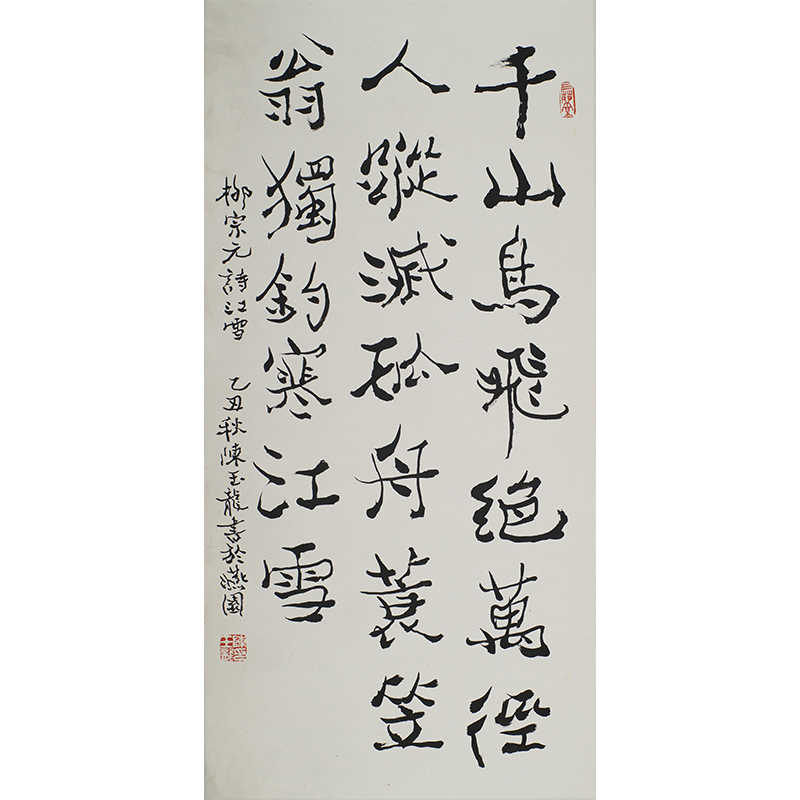 千山鳥飛絕萬徑
人蹤滅孤舟蓑笠
翁獨釣寒江雪
柳宗元詩江雪 乙丑秋陳玉龍書於燕園